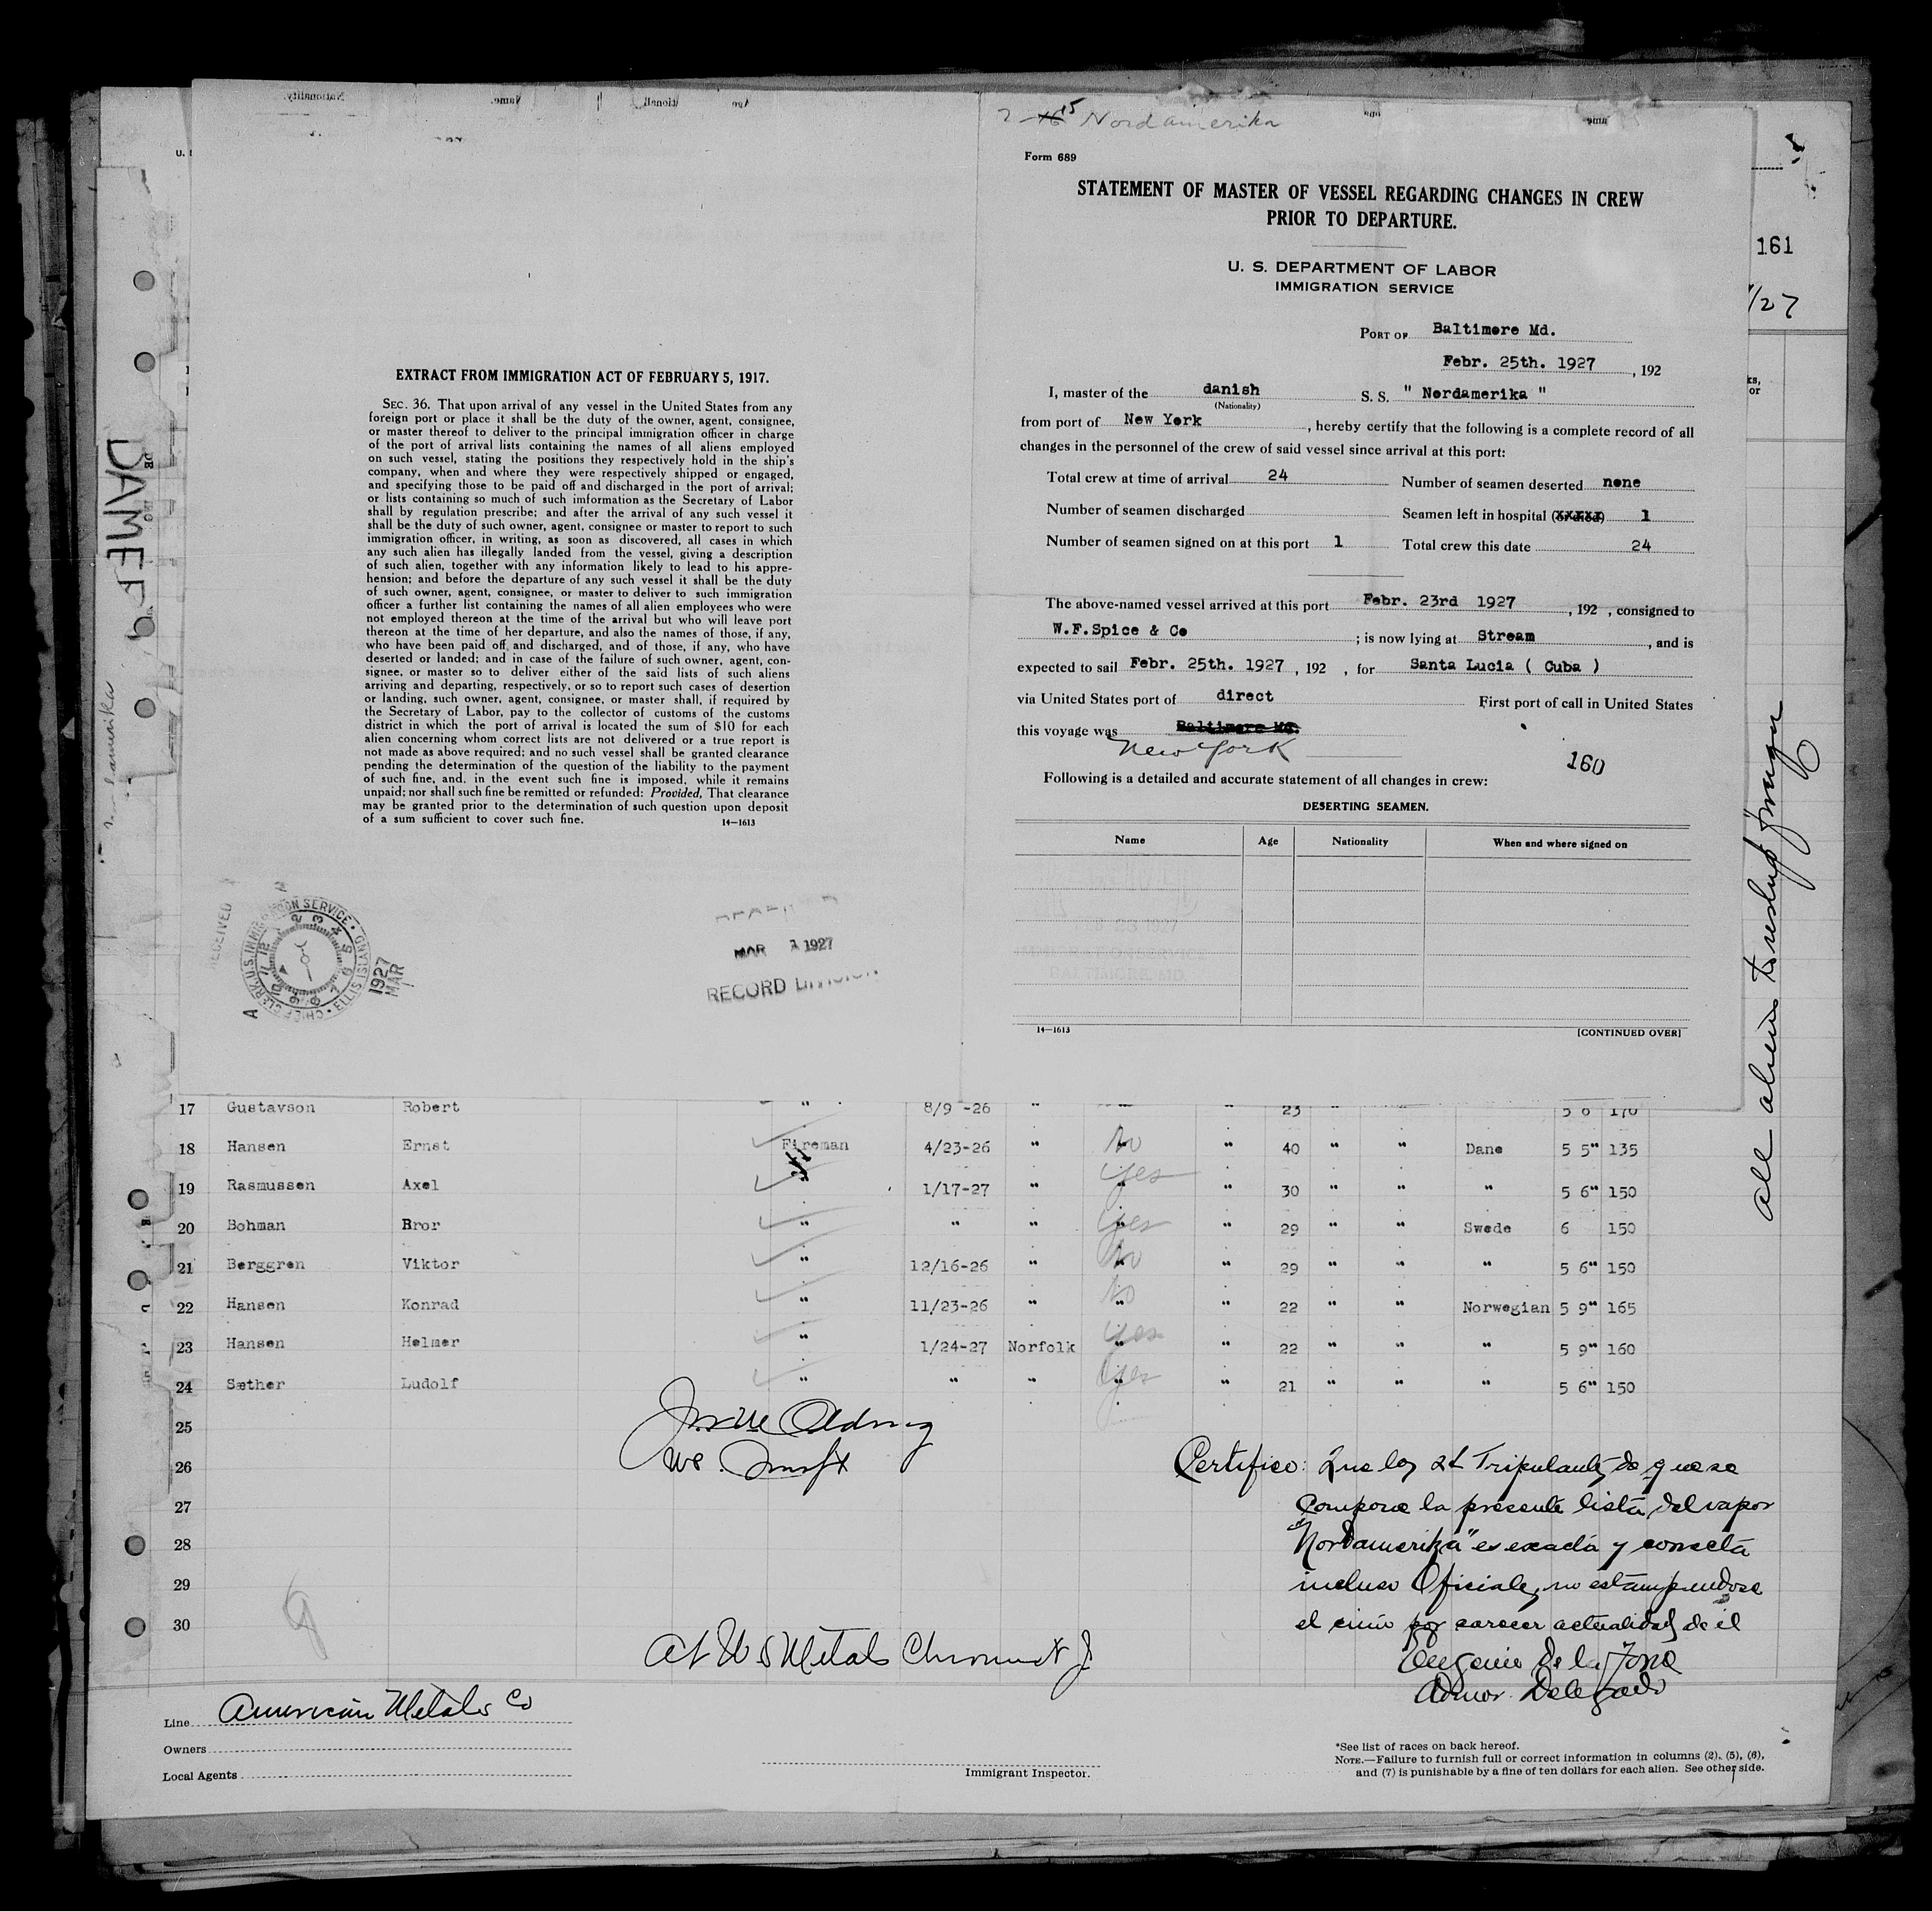 Nordamerika
Form 689
STATEMENT OF MASTER OF VESSEL REGARDING CHANGES IN CREW
PRIOR TO DEPARTURE.
U. S. DEPARTMENT OF LABOR
IMMIGRATION SERVICE
161
/27
PORT OF Baltimore Md.
Febr. 25th. 1927, 192
I, master of the danish S. S. " Nordamerika "
(Nationality)
from port of New York, hereby certify that the following is a complete record of all
changes in the personnel of the crew of said vessel since arrival at this port:
Total crew at time of arrival 24 Number of seamen deserted none
Number of seamen discharged Seamen left in hospital (or died) 1
Number of seamen signed on at this port 1 Total crew this date 24
The above-named vessel arrived at this port Febr. 23rd 1927, 192 , consigned to
W.F.Spice & Co ; is now lying at Stream, and is
expected to sail Febr. 25th. 1927, 192 , for Santa Lucia ( Cuba )
via United States port of direct First port of call in United States
this voyage was Baltimore Md.
New York
160
Following is a detailed and accurate statement of all changes in crew:
DESERTING SEAMEN.
Name Age Nationality When and where signed on
14—1613 [CONTINUED OVER]
EXTRACT FROM IMMIGRATION ACT OF FEBRUARY 5, 1917.
SEC. 36. That upon arrival of any vessel in the United States from any
foreign port or place it shall be the duty of the owner, agent, consignee,
or master thereof to deliver to the principal immigration officer in charge
of the port of arrival lists containing the names of all aliens employed
on such vessel, stating the positions they respectively hold in the ship's
company, when and where they were respectively shipped or engaged,
and specifying those to be paid off and discharged in the port of arrival;
or lists containing so much of such imformation as the Secretary of Labor
shall by regulation prescribe; and after the arrival of any such vessel it
shall be the duty of such owner, agent, consignee or master to report to such
immigration officer, in writing, as soon as discovered, all cases in which
any such alien has illegally landed from the vessel, giving a description
of such alien, together with any information likely to lead to his appre-
hension; and before the departure of any such vessel it shall be the duty
of such owner, agent, consignee, or master to deliver to such immigration
officer a further list containing the names of all alien employees who were
not employed thereon at the time of the arrival but who will leave port
thereon at the time of her departure, and also the names of those, if any,
who have been paid off and discharged, and of those, if any, who have
deserted or landed; and in case of the failure of such owner, agent, con-
signee, or master so to deliver either of the said lists of such aliens
arriving and departing, respectively, or so to report such cases of desertion
or landing, such owner, agent, consignee, or master shall, if required by
the Secretary of Labor, pay to the collector of customs of the customs
district in which the port of arrival is located the sum of $10 for each
alien concerning whom correct lists are not delivered or a true report is
not made as above required; and no such vessel shall be granted clearance
pending the determination of the question of the liability to the payment
of such fine, and, in the event such fine is imposed, while it remains
unpaid; nor shall such fine be remitted or refunded: Provided, That clearance
may be granted prior to the determination of such question upon deposit
of a sum sufficient to cover such fine. 14—1613
RECEIVED
CHIEF CLERK, U.S. IMMIGRATION SERVICE • ELLIS ISLAND
1927 MAR 1
MAR 1 1927
RECORD DIVISION
17 Gustavson Robert " 8/9 -26 " " " 23 " " 5 6 170
18 Hansen Ernst Fireman 4/23-26 " No " 40 " " Dane 5 5" 135
19 Rasmussen Axel " 1/17-27 " Yes " 30 " " " 5 6" 150
20 Bohman Bror " " " Yes " 29 " " Swede 6 150
21 Berggren Viktor " 12/16-26 " No " 29 " " " 5 6" 150
22 Hansen Konrad " 11/23-26 " No " 22 " " Norwegian 5 9" 165
23 Hansen Helmer " 1/24-27 Norfolk Yes " 22 " " " 5 9" 160
24 Sæther Ludolf " " " Yes " 21 " " " 5 6" 150
25
26
27
28
29
30
Certifico: Que los 24 Tripulantes de que se
compone la presente lista, del vapor
"Nordamerika" es exacta y correcta
incluso Oficiales, no estampandose
el cuño por carecer actualidad de él
Eugenio De la Torre
Admor. Delegado
At U S Metals Chrome
Line American Metals Co
Owners
Local Agents
Immigrant Inspector.
*See list of races on back hereof.
NOTE.—Failure to furnish full or correct information in columns (2), (5), (6),
and (7) is punishable by a fine of ten dollars for each alien. See other side.
all aliens to reship foreign